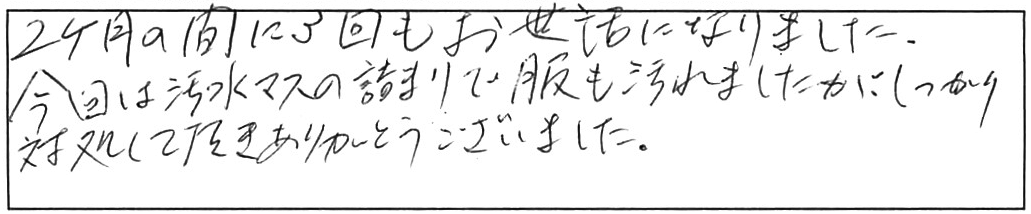 2ケ月の間に3回もお世話になりました。
今回は汚水マスの詰まりで服も汚れましたがしっかり
対処して頂きありがとうございました。